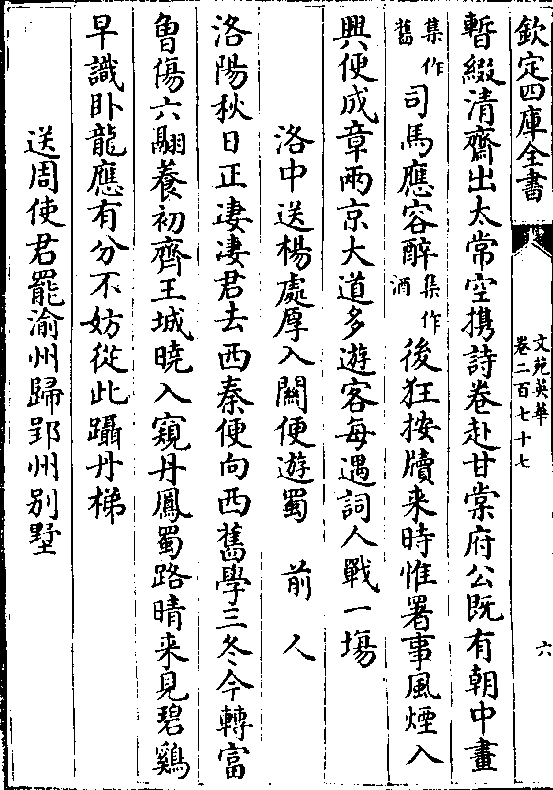 欽定四庫全書
文苑英華
卷二百七十七
六
暫綴清齋出太常空携詩卷赴甘棠府公既有朝中畫
集作舊司馬應容醉集作酒後狂按牘来時惟署事風煙入
興便成章兩京大道多遊客每遇詞人戰一塲
洛中送楊處厚入闗便遊蜀 前人
洛陽秋日正凄凄君去西秦便向西舊學三冬今轉富
曾傷六翮養初齊王城曉入窺丹鳳蜀路晴来見碧鷄
早識卧龍應有分不妨從此躡丹梯
送周使君罷渝州歸郢州别墅